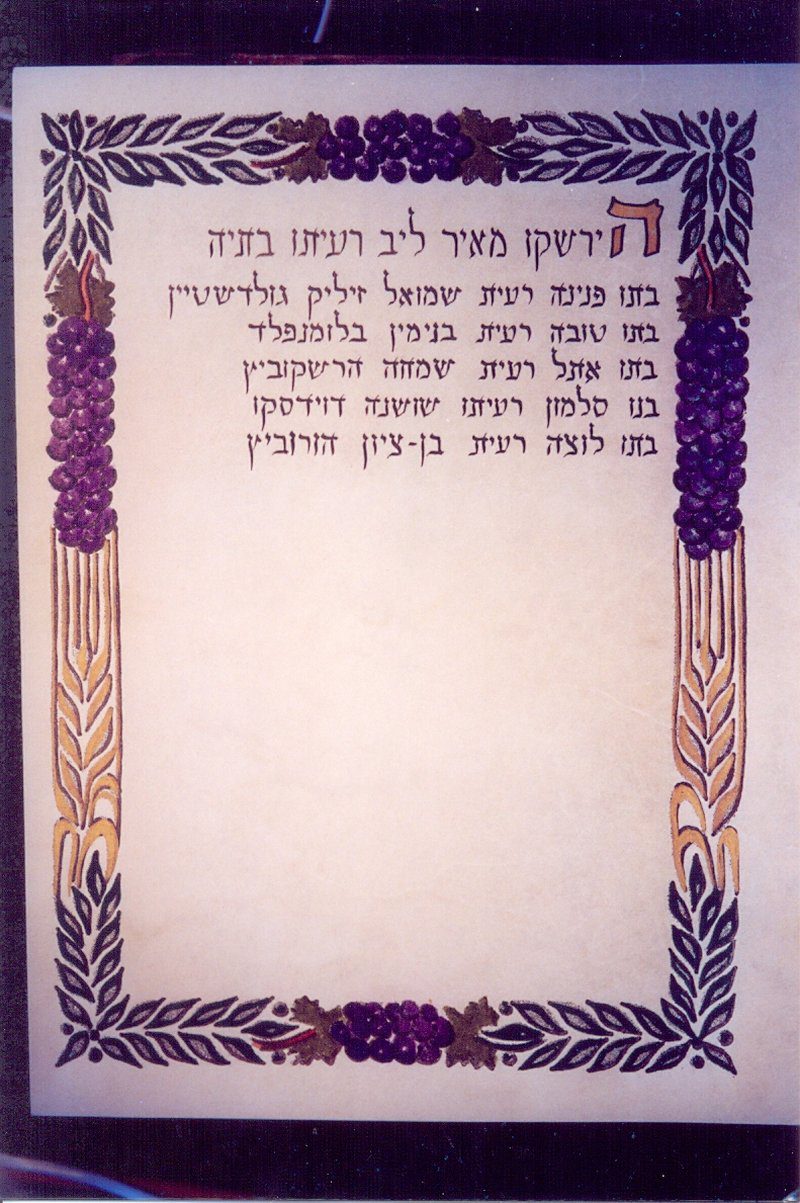 הירשקו מאיר ליב רעיתו בתיה
בתו פנינה רעית שמואל זיליק גולדשטיין
בתו טובה רעית בנימין בלומנפלד
בתו אתל רעית שמחה הרשקוביץ
בנו סלמון רעיתו שושנה דוידסקו
בתו לוצה רעית בן-ציון הזרוביץ